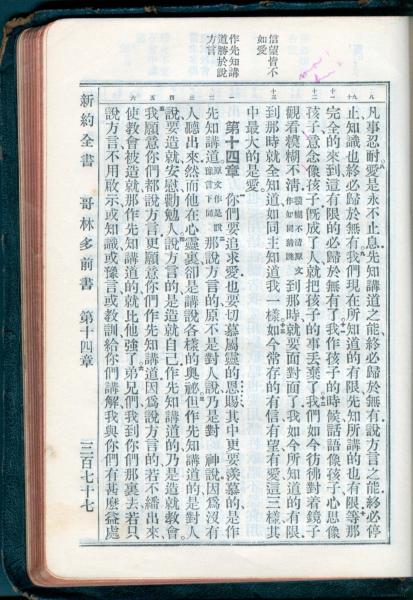 信望皆不
如愛
作先知講
道勝於說
方言
八 九 十 十一 十二 十三
一 二 三 四 五 六
凡事忍耐、愛是永不止息、先知講道之能、終必歸於無有、說方言之能、終必停
止、知識也終必歸於無有、我們現在所知道的有限、先知所講的也有限、等那
完全的來到、這有限的必歸於無有了、我作孩子的時候、話語像孩子、心思像
孩子、意念像孩子、旣成了人、就把孩子的事丟棄了、我們如今彷彿對着鏡子
觀看、模糊不淸、模糊不淸原文作如同猜謎到那時就要面對面了、我如今所知道的有限、
到那時就全知道、如同主知道我一樣、如今常存的有信、有望、有愛、這三樣、其
中最大的是愛。
第十四章 你們要追求愛、也要切慕屬靈的恩賜、其中更要羨慕的、是作
先知講道、原文作是說豫言下同那說方言的、原不是對人說、乃是對 神說、因爲沒有
人聽出來、然而他在心靈裏、卻是講說各樣的奧祕、但作先知講道的、是對人
說、要造就安慰勸勉人、說方言的、是造就自己、作先知講道的、乃是造就敎會。
我願意你們都說方言、更願意你們作先知講道、因爲說方言的、若不繙出來、
使敎會被造就、那作先知講道的、就比他強了、弟兄們、我到你們那裏去、若只
說方言、不用啟示、或知識、或豫言、或敎訓、給你們講解、我與你們有甚麼益處
新約全書 哥林多前書 第十四章 三百七十七